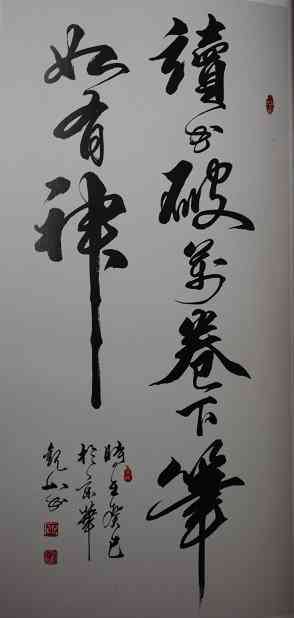 讀書破萬卷下筆
如有神
時在癸巳
於京華